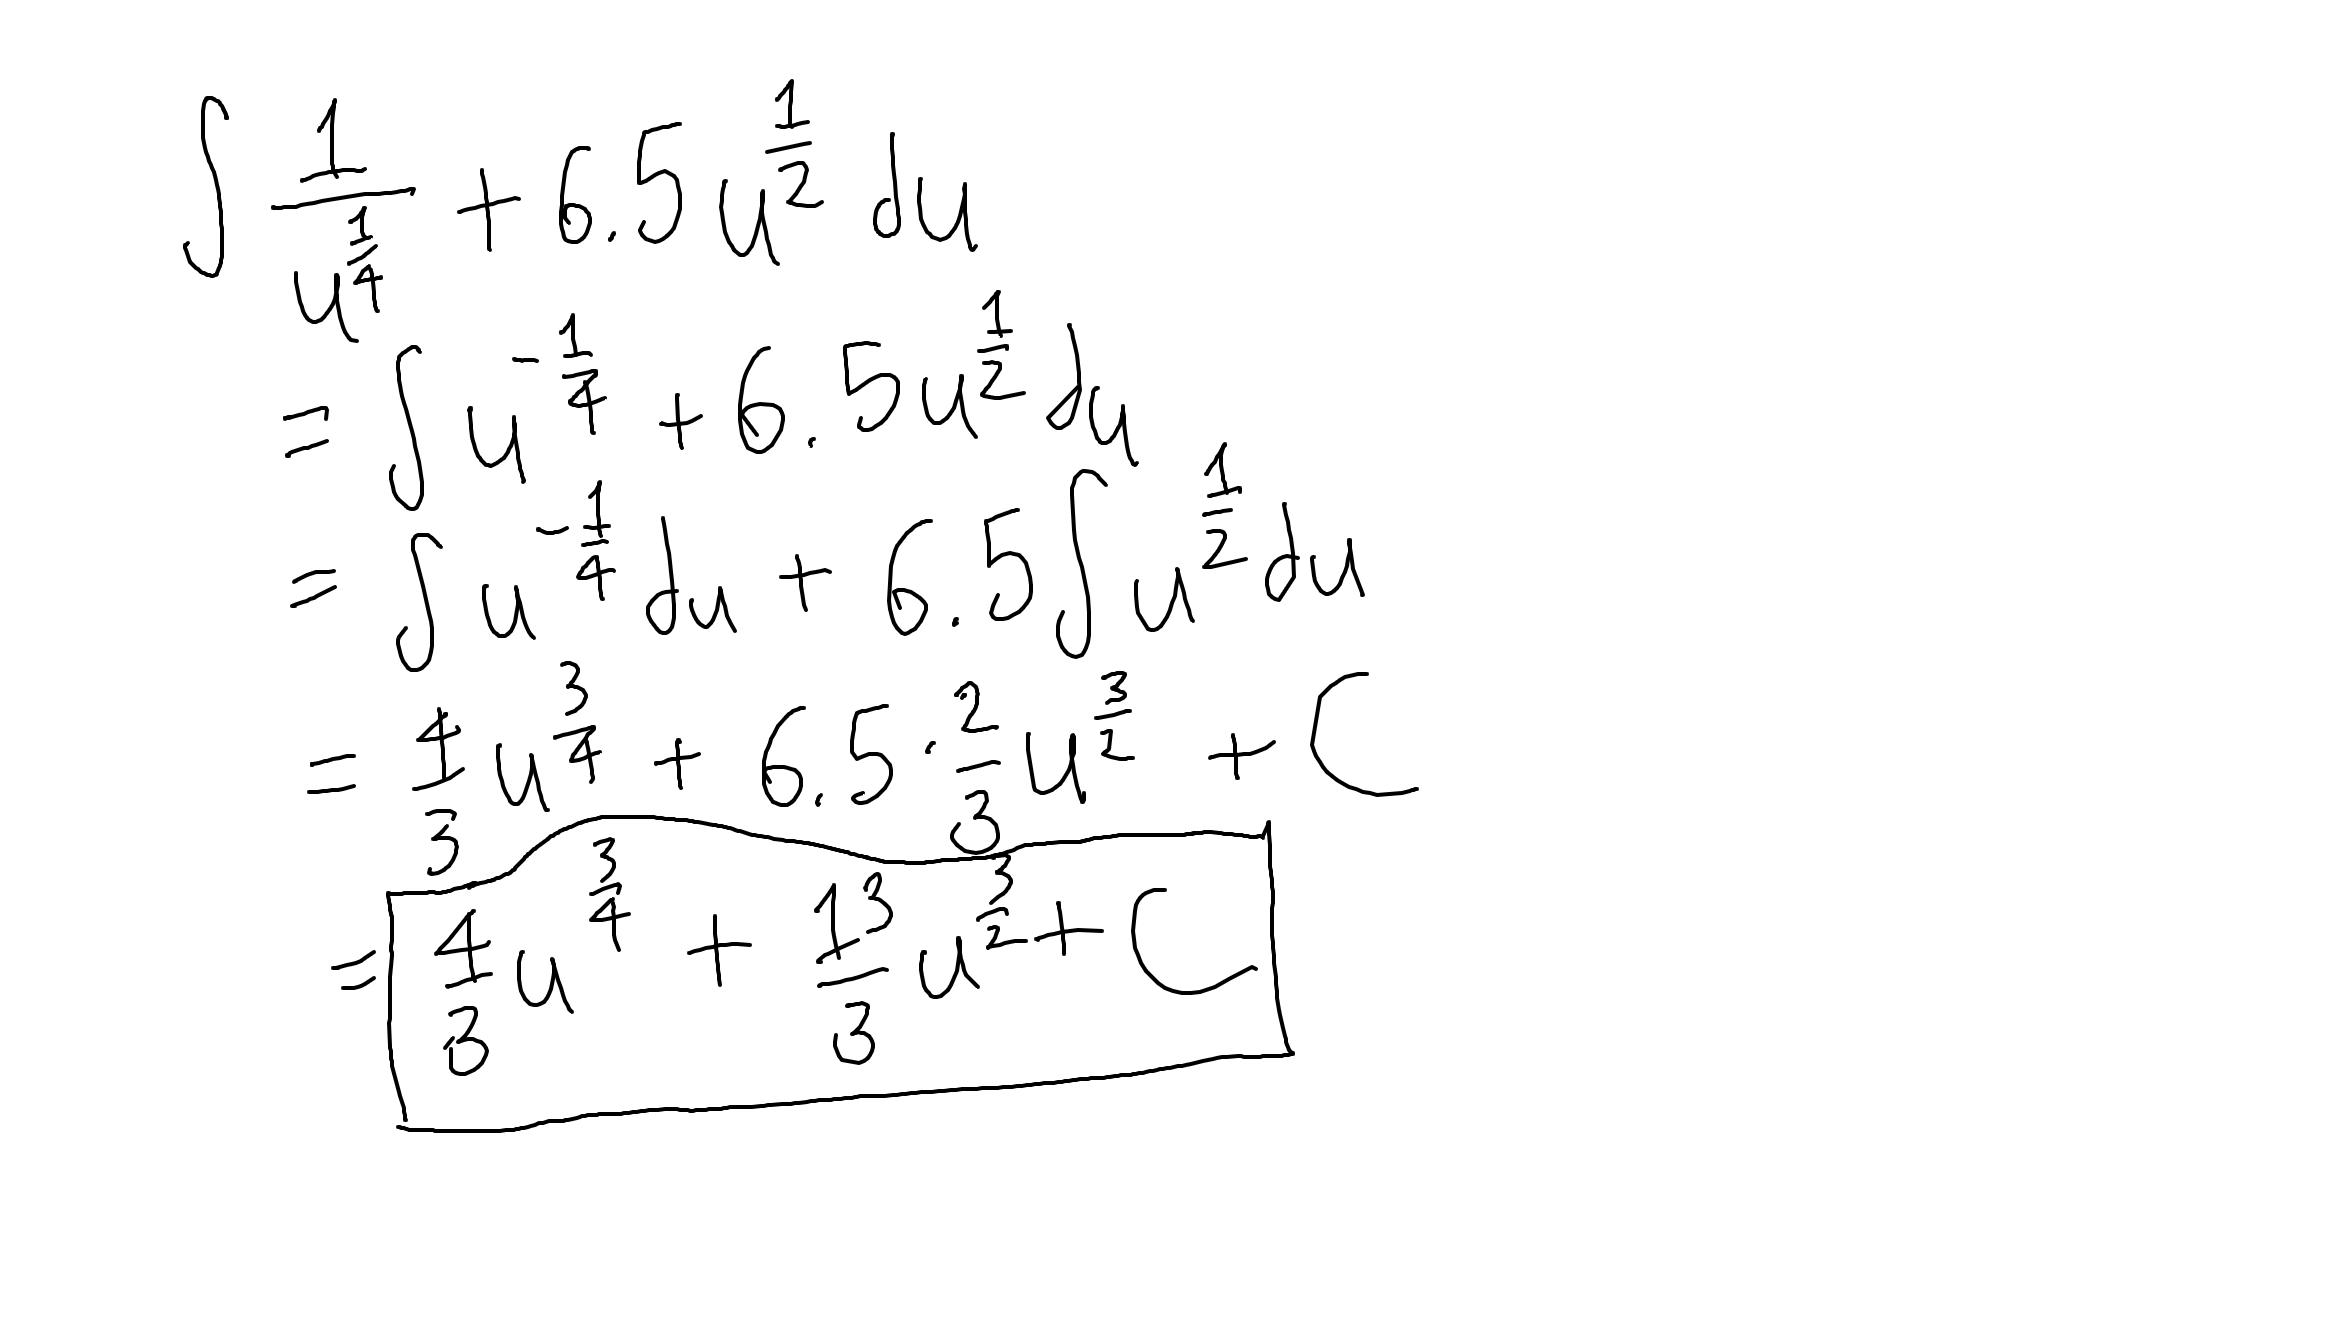 ∫ 1/u^(1/4) + 6.5u^(1/2) du
= ∫ u^(-1/4) + 6.5u^(1/2) du
= ∫ u^(-1/4) du + 6.5 ∫ u^(1/2) du
= 4/3 u^(3/4) + 6.5 · 2/3 u^(3/2) + C
= 4/3 u^(3/4) + 13/3 u^(3/2) + C